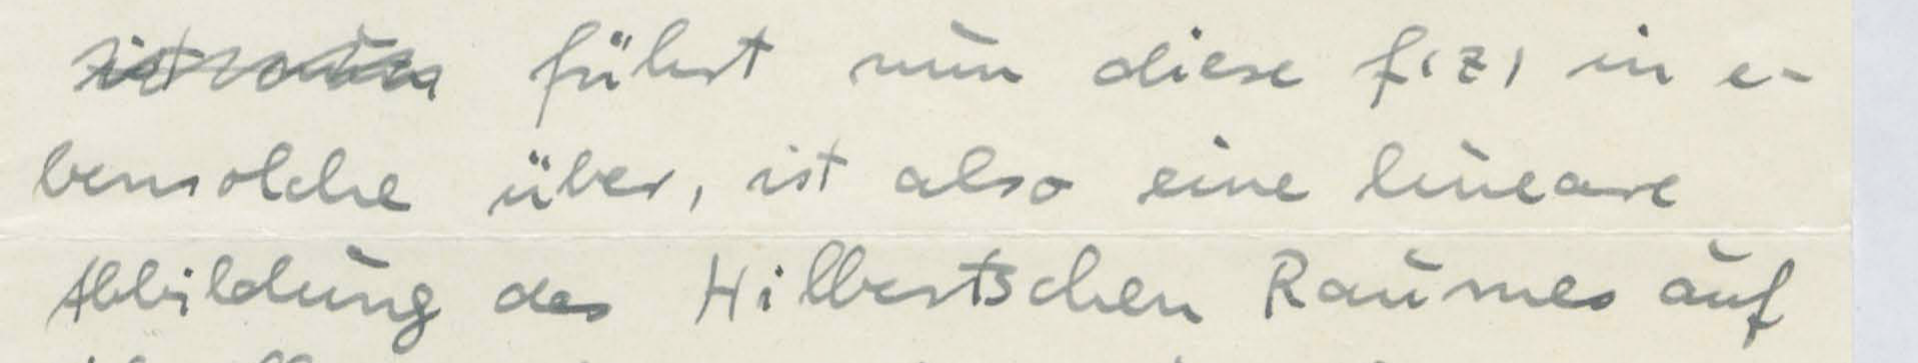 führt nun diese f(z) in e-
bensolche über, ist also eine lineare
Abbildung des Hilbertschen Raumes auf